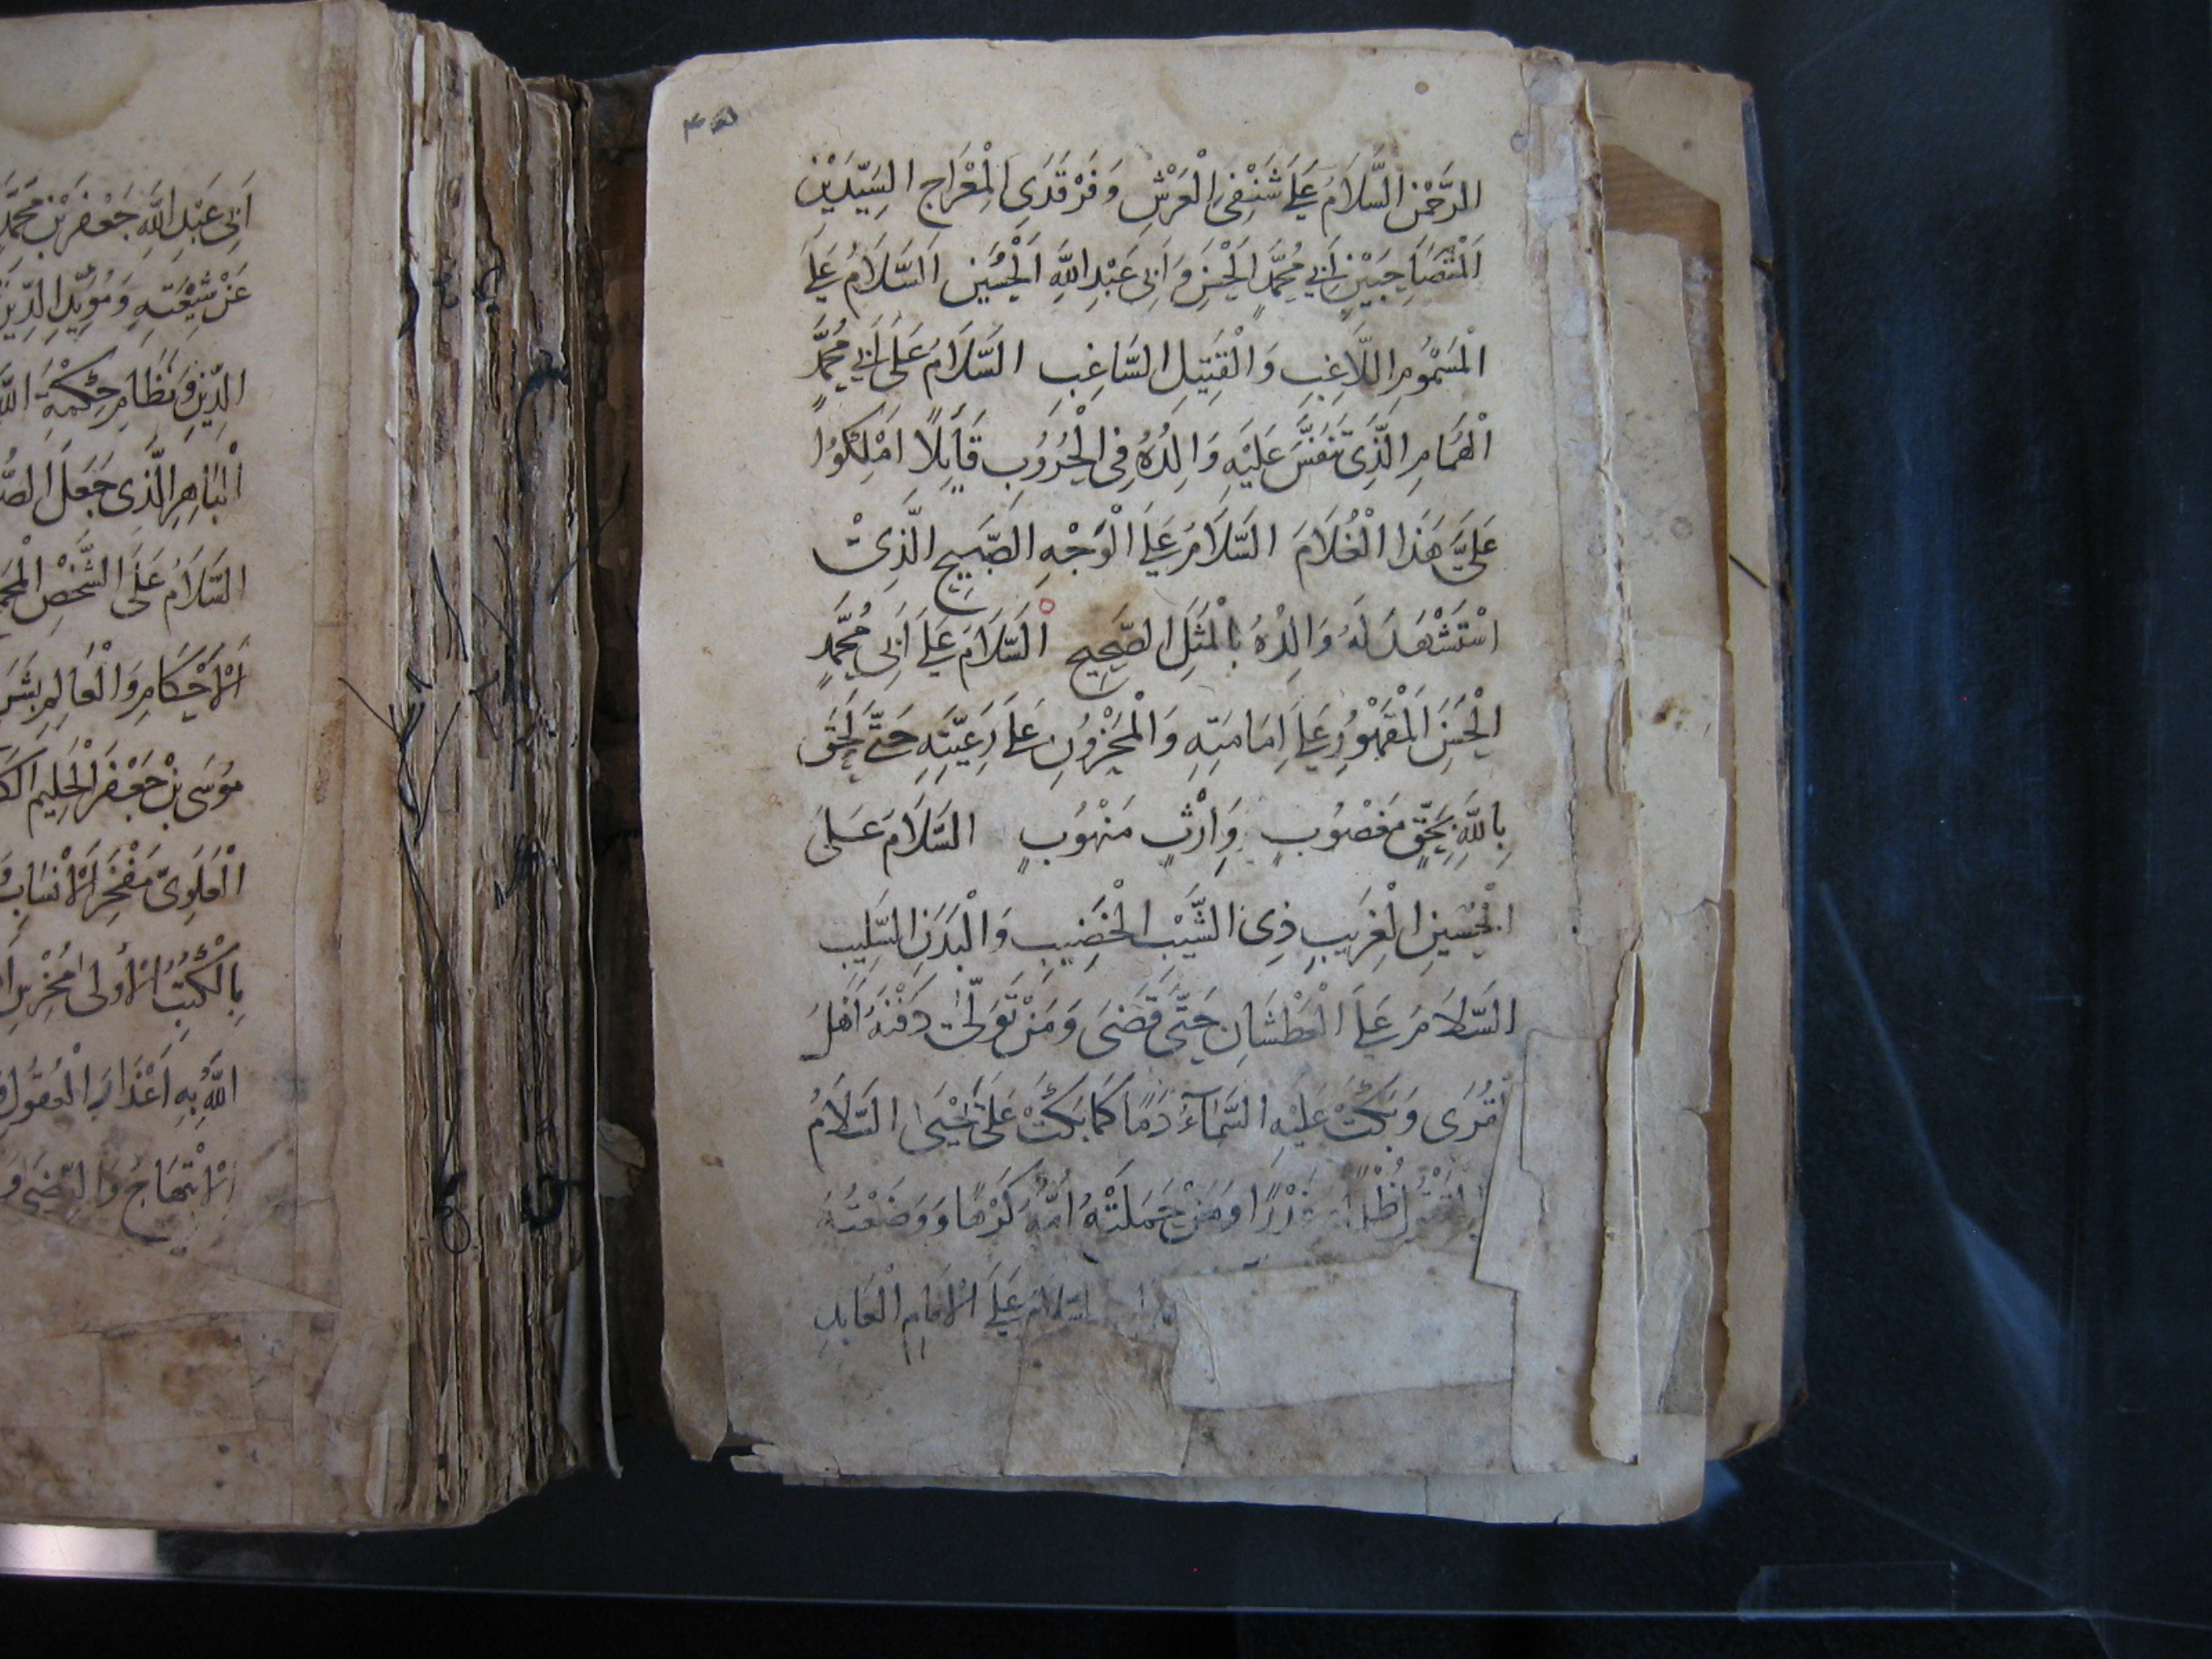 الرَّحْمٰنِ السَّلَامُ عَلَى شَنْفَيِ الْعَرْشِ وَفَرْقَدَيِ الْمِعْرَاجِ السَّيِّدَيْنِ
الْمُتَصَاحِبَيْنِ اَبِي مُحَمَّدٍ الْحَسَنِ وَ اَبِي عَبْدِ اللَّهِ الْحُسَيْنِ اَلسَّلَامُ عَلَى
الْمَسْمُومِ اللَّاغِبِ وَالْقَتِيلِ السَّاغِبِ السَّلَامُ عَلَى اَبِي مُحَمَّدٍ
الْهُمَامِ الَّذِي تَنَفَّسَ عَلَيْهِ وَالِدُهُ فِي الْحُرُوبِ قَايِلًا اَمْلِكُوا
عَلَيَّ هَذَا الْغُلَامَ السَّلَامُ عَلَى الْوَجْهِ الصَّبِيحِ الَّذِي
اسْتَشْهَدَ لَهُ وَالِدُهُ بِالْمَثَلِ الصَّحِيحِ اَلسَّلَامُ عَلَى اَبِي مُحَمَّدٍ
الْحَسَنِ الْمَقْهُورِ عَلَى اِمَامَتِهِ وَالْمَحْزُونِ عَلَى رَعِيَّتِهِ حَتَّى لَحِقَ
بِاللَّهِ بِحَقٍّ مَغْصُوبٍ وَاِرْثٍ مَنْهُوبٍ السَّلَامُ عَلَى
الْحُسَيْنِ الْغَرِيبِ ذِي الشَّيْبِ الْخَضِيبِ وَالْبَدَنِ السَّلِيبِ
السَّلَامُ عَلَى الْعَطْشَانِ حَتَّى قَضَى وَمَنْ تَوَلَّى دَفْنَهُ اَهْلُ
الْقُرَى وَبَكَتْ عَلَيْهِ السَّمَآءُ دَمًا كَمَا بَكَتْ عَلَى يَحْيَى السَّلَامُ
ظُلْمًا غَدْرًا وَمَنْ حَمَلَتْهُ اُمُّهُ كَرْهًا وَوَضَعَتْهُ
السَّلَامُ عَلَى الْاِمَامِ الْعَابِدِ
اَبِي عَبْدِ اللَّهِ جَعْفَرِ بْنِ مُحَمَّدٍ
عَنْ شِيعَتِهِ وَمُؤَيِّدِ الدِّينِ
الدِّينِ وَنِظَامِ حِكْمَةِ
الْبَاهِرِ الَّذِي جَعَلَ
السَّلَامُ عَلَى الشَّخْصِ
الْاَحْكَامِ وَالْعَالِمِ
مُوسَى بْنِ جَعْفَرٍ الْحَلِيمِ
الْعَلَوِيِّ مَفْخَرِ الْاَنْسَابِ
بِالْكُتُبِ الْاُولَى مُخْرِسِ
اللَّهُ بِهِ اَعْذَارَ الْعُقُولِ
الْاِبْتِهَاجِ وَالرِّضَى